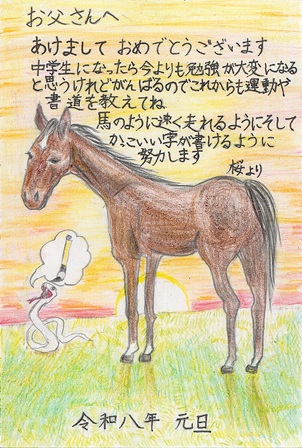 お父さんへ
あけまして おめでとうございます
中学生になったら今よりも勉強が大変になる
と思うけれどがんばるのでこれからも運動や
書道を教えてね
馬のように速く走れるようにそして
かっこいい字が書けるように
努力します
桜より
令和八年 元旦